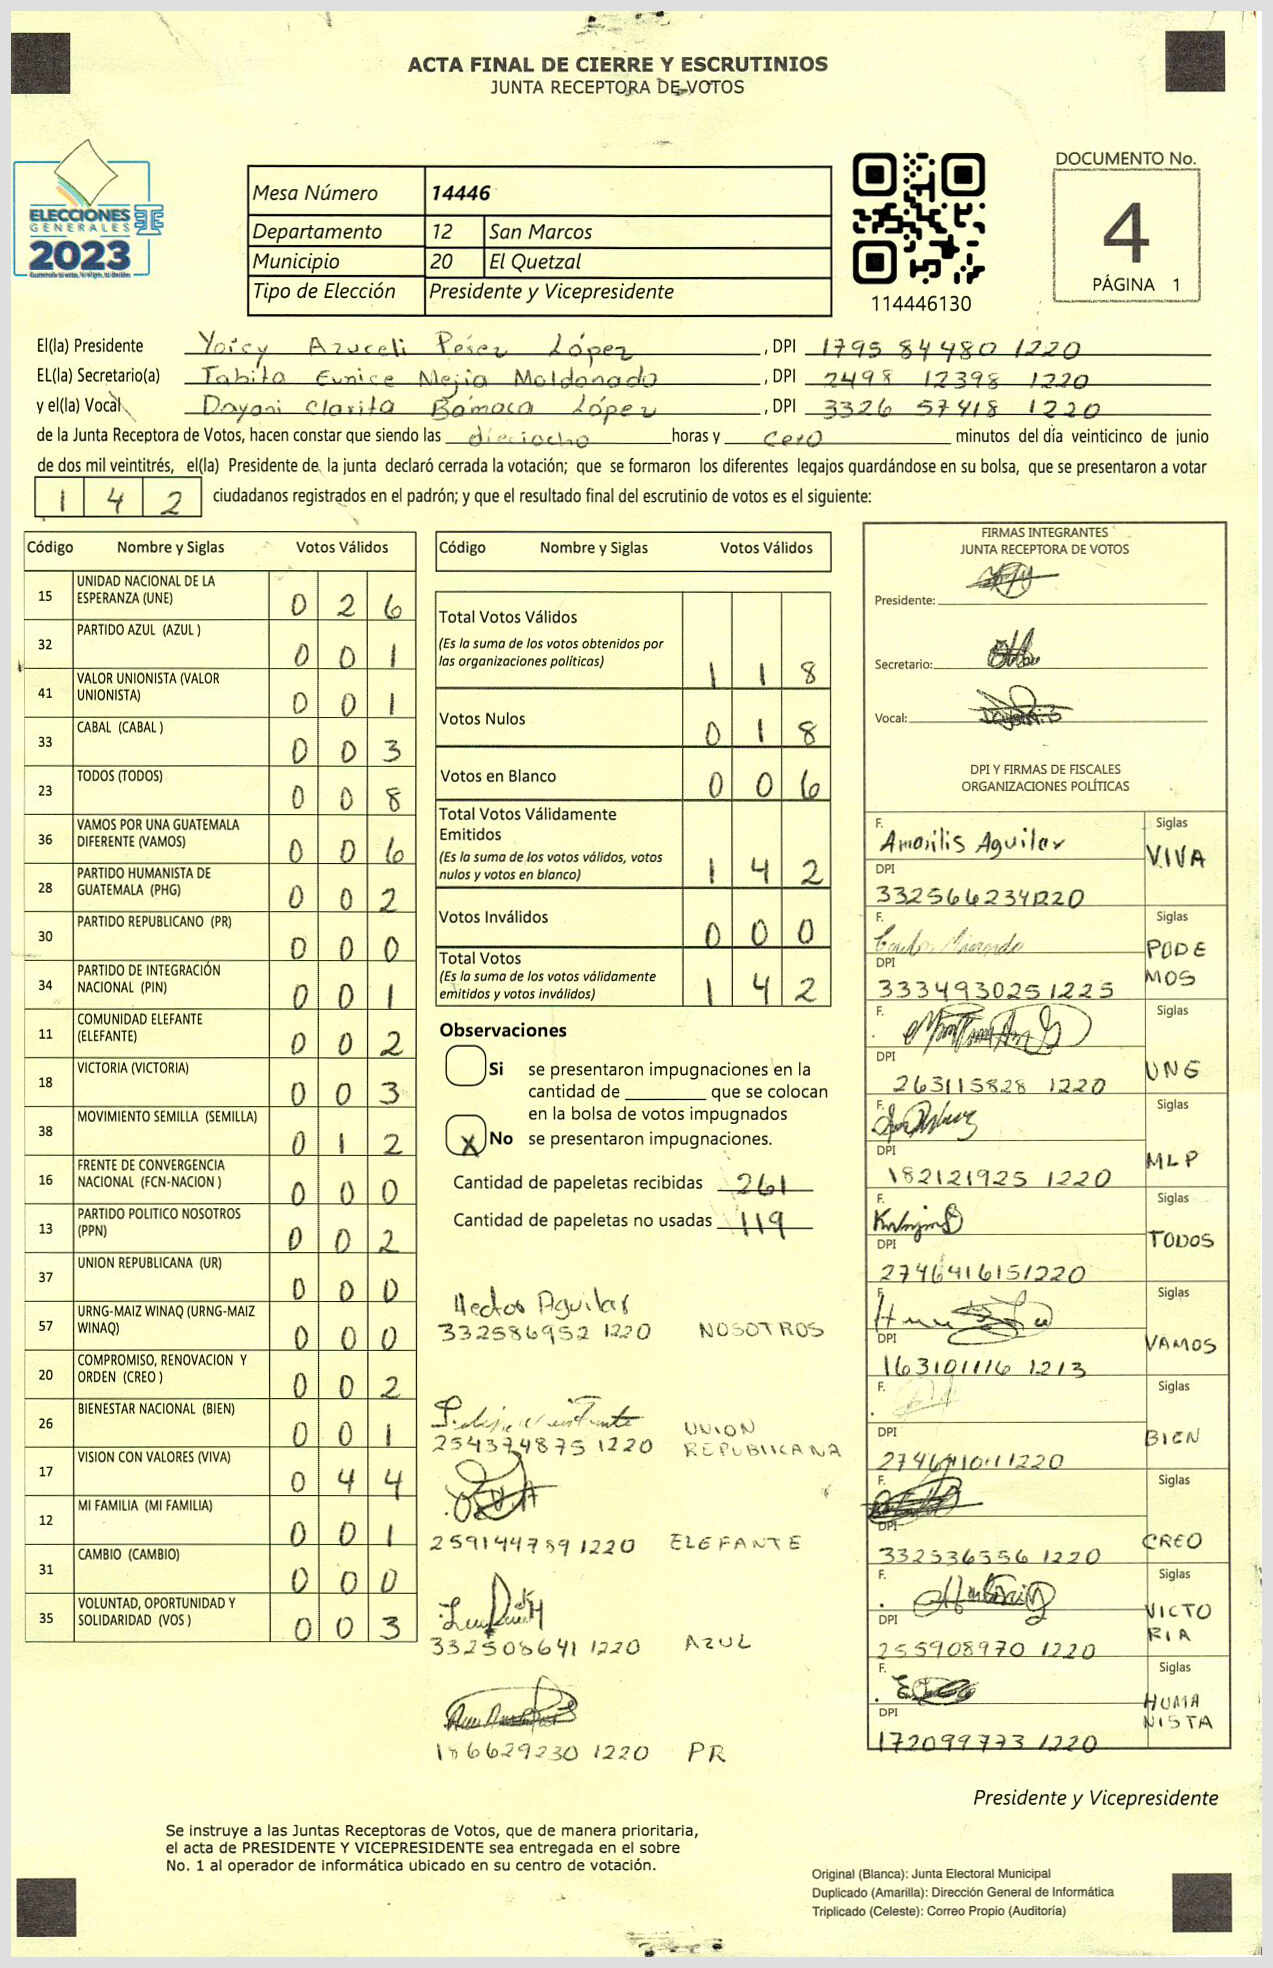 ACTA FINAL DE CIERRE Y ESCRUTINIOS
JUNTA RECEPTORA DE VOTOS
ELECCIONES
GENERALES
2023
Mesa Número 14446
Departamento 12 San Marcos
Municipio 20 El Quetzal
Tipo de Elección Presidente y Vicepresidente
114446130
DOCUMENTO No.
4
PÁGINA 1
El(la) Presidente Yoicy Azuceli Pérez López, DPI 1795 84480 1220
EL(la) Secretario(a) Tabita Eunice Mejia Maldonado, DPI 2498 12398 1220
y el(la) Vocal Dayani Clarita Bámaca López, DPI 3326 57418 1220
de la Junta Receptora de Votos, hacen constar que siendo las dieciocho horas y cero minutos del día veinticinco de junio
de dos mil veintitrés, el(la) Presidente de la junta declaró cerrada la votación; que se formaron los diferentes legajos guardándose en su bolsa, que se presentaron a votar
142 ciudadanos registrados en el padrón; y que el resultado final del escrutinio de votos es el siguiente:
Código Nombre y Siglas Votos Válidos
15 UNIDAD NACIONAL DE LA
ESPERANZA (UNE) 026
32 PARTIDO AZUL (AZUL ) 001
41 VALOR UNIONISTA (VALOR
UNIONISTA) 001
33 CABAL (CABAL ) 003
23 TODOS (TODOS) 008
36 VAMOS POR UNA GUATEMALA
DIFERENTE (VAMOS) 006
28 PARTIDO HUMANISTA DE
GUATEMALA (PHG) 002
30 PARTIDO REPUBLICANO (PR) 000
34 PARTIDO DE INTEGRACIÓN
NACIONAL (PIN) 001
11 COMUNIDAD ELEFANTE
(ELEFANTE) 002
18 VICTORIA (VICTORIA) 003
38 MOVIMIENTO SEMILLA (SEMILLA) 012
16 FRENTE DE CONVERGENCIA
NACIONAL (FCN-NACION ) 000
13 PARTIDO POLITICO NOSOTROS
(PPN) 002
37 UNION REPUBLICANA (UR) 000
57 URNG-MAIZ WINAQ (URNG-MAIZ
WINAQ) 000
20 COMPROMISO, RENOVACION Y
ORDEN (CREO ) 002
26 BIENESTAR NACIONAL (BIEN) 001
17 VISION CON VALORES (VIVA) 044
12 MI FAMILIA (MI FAMILIA) 001
31 CAMBIO (CAMBIO) 000
35 VOLUNTAD, OPORTUNIDAD Y
SOLIDARIDAD (VOS ) 003
Código Nombre y Siglas Votos Válidos
Total Votos Válidos
(Es la suma de los votos obtenidos por
las organizaciones políticas) 118
Votos Nulos 018
Votos en Blanco 006
Total Votos Válidamente
Emitidos
(Es la suma de los votos válidos, votos
nulos y votos en blanco) 142
Votos Inválidos 000
Total Votos
(Es la suma de los votos válidamente
emitidos y votos inválidos) 142
Observaciones
Si se presentaron impugnaciones en la
cantidad de ________ que se colocan
en la bolsa de votos impugnados
X No se presentaron impugnaciones.
Cantidad de papeletas recibidas 261
Cantidad de papeletas no usadas 119
Hector Aguilar
332586952 1220 NOSOTROS
UNION
254374875 1220 REPUBLICANA
259144789 1220 ELEFANTE
332508641 1220 AZUL
186629230 1220 PR
FIRMAS INTEGRANTES
JUNTA RECEPTORA DE VOTOS
Presidente:
Secretario:
Vocal:
DPI Y FIRMAS DE FISCALES
ORGANIZACIONES POLÍTICAS
F. Amarilis Aguilar Siglas
VIVA
DPI
3325662341220
F. Siglas
PODE
MOS
DPI
3334930251225
F. Siglas
DPI
263115828 1220 UNE
F. Siglas
DPI
182121925 1220 MLP
F. Siglas
DPI TODOS
2746416151220
F. Siglas
DPI VAMOS
163101116 1213
F. Siglas
DPI BIEN
F. Siglas
DPI
332536556 1220 CREO
F. Siglas
VICTO
RIA
DPI
255908970 1220
F. Siglas
HUMA
NISTA
DPI
172099773 1220
Presidente y Vicepresidente
Se instruye a las Juntas Receptoras de Votos, que de manera prioritaria,
el acta de PRESIDENTE Y VICEPRESIDENTE sea entregada en el sobre
No. 1 al operador de informática ubicado en su centro de votación.
Original (Blanca): Junta Electoral Municipal
Duplicado (Amarilla): Dirección General de Informática
Triplicado (Celeste): Correo Propio (Auditoría)